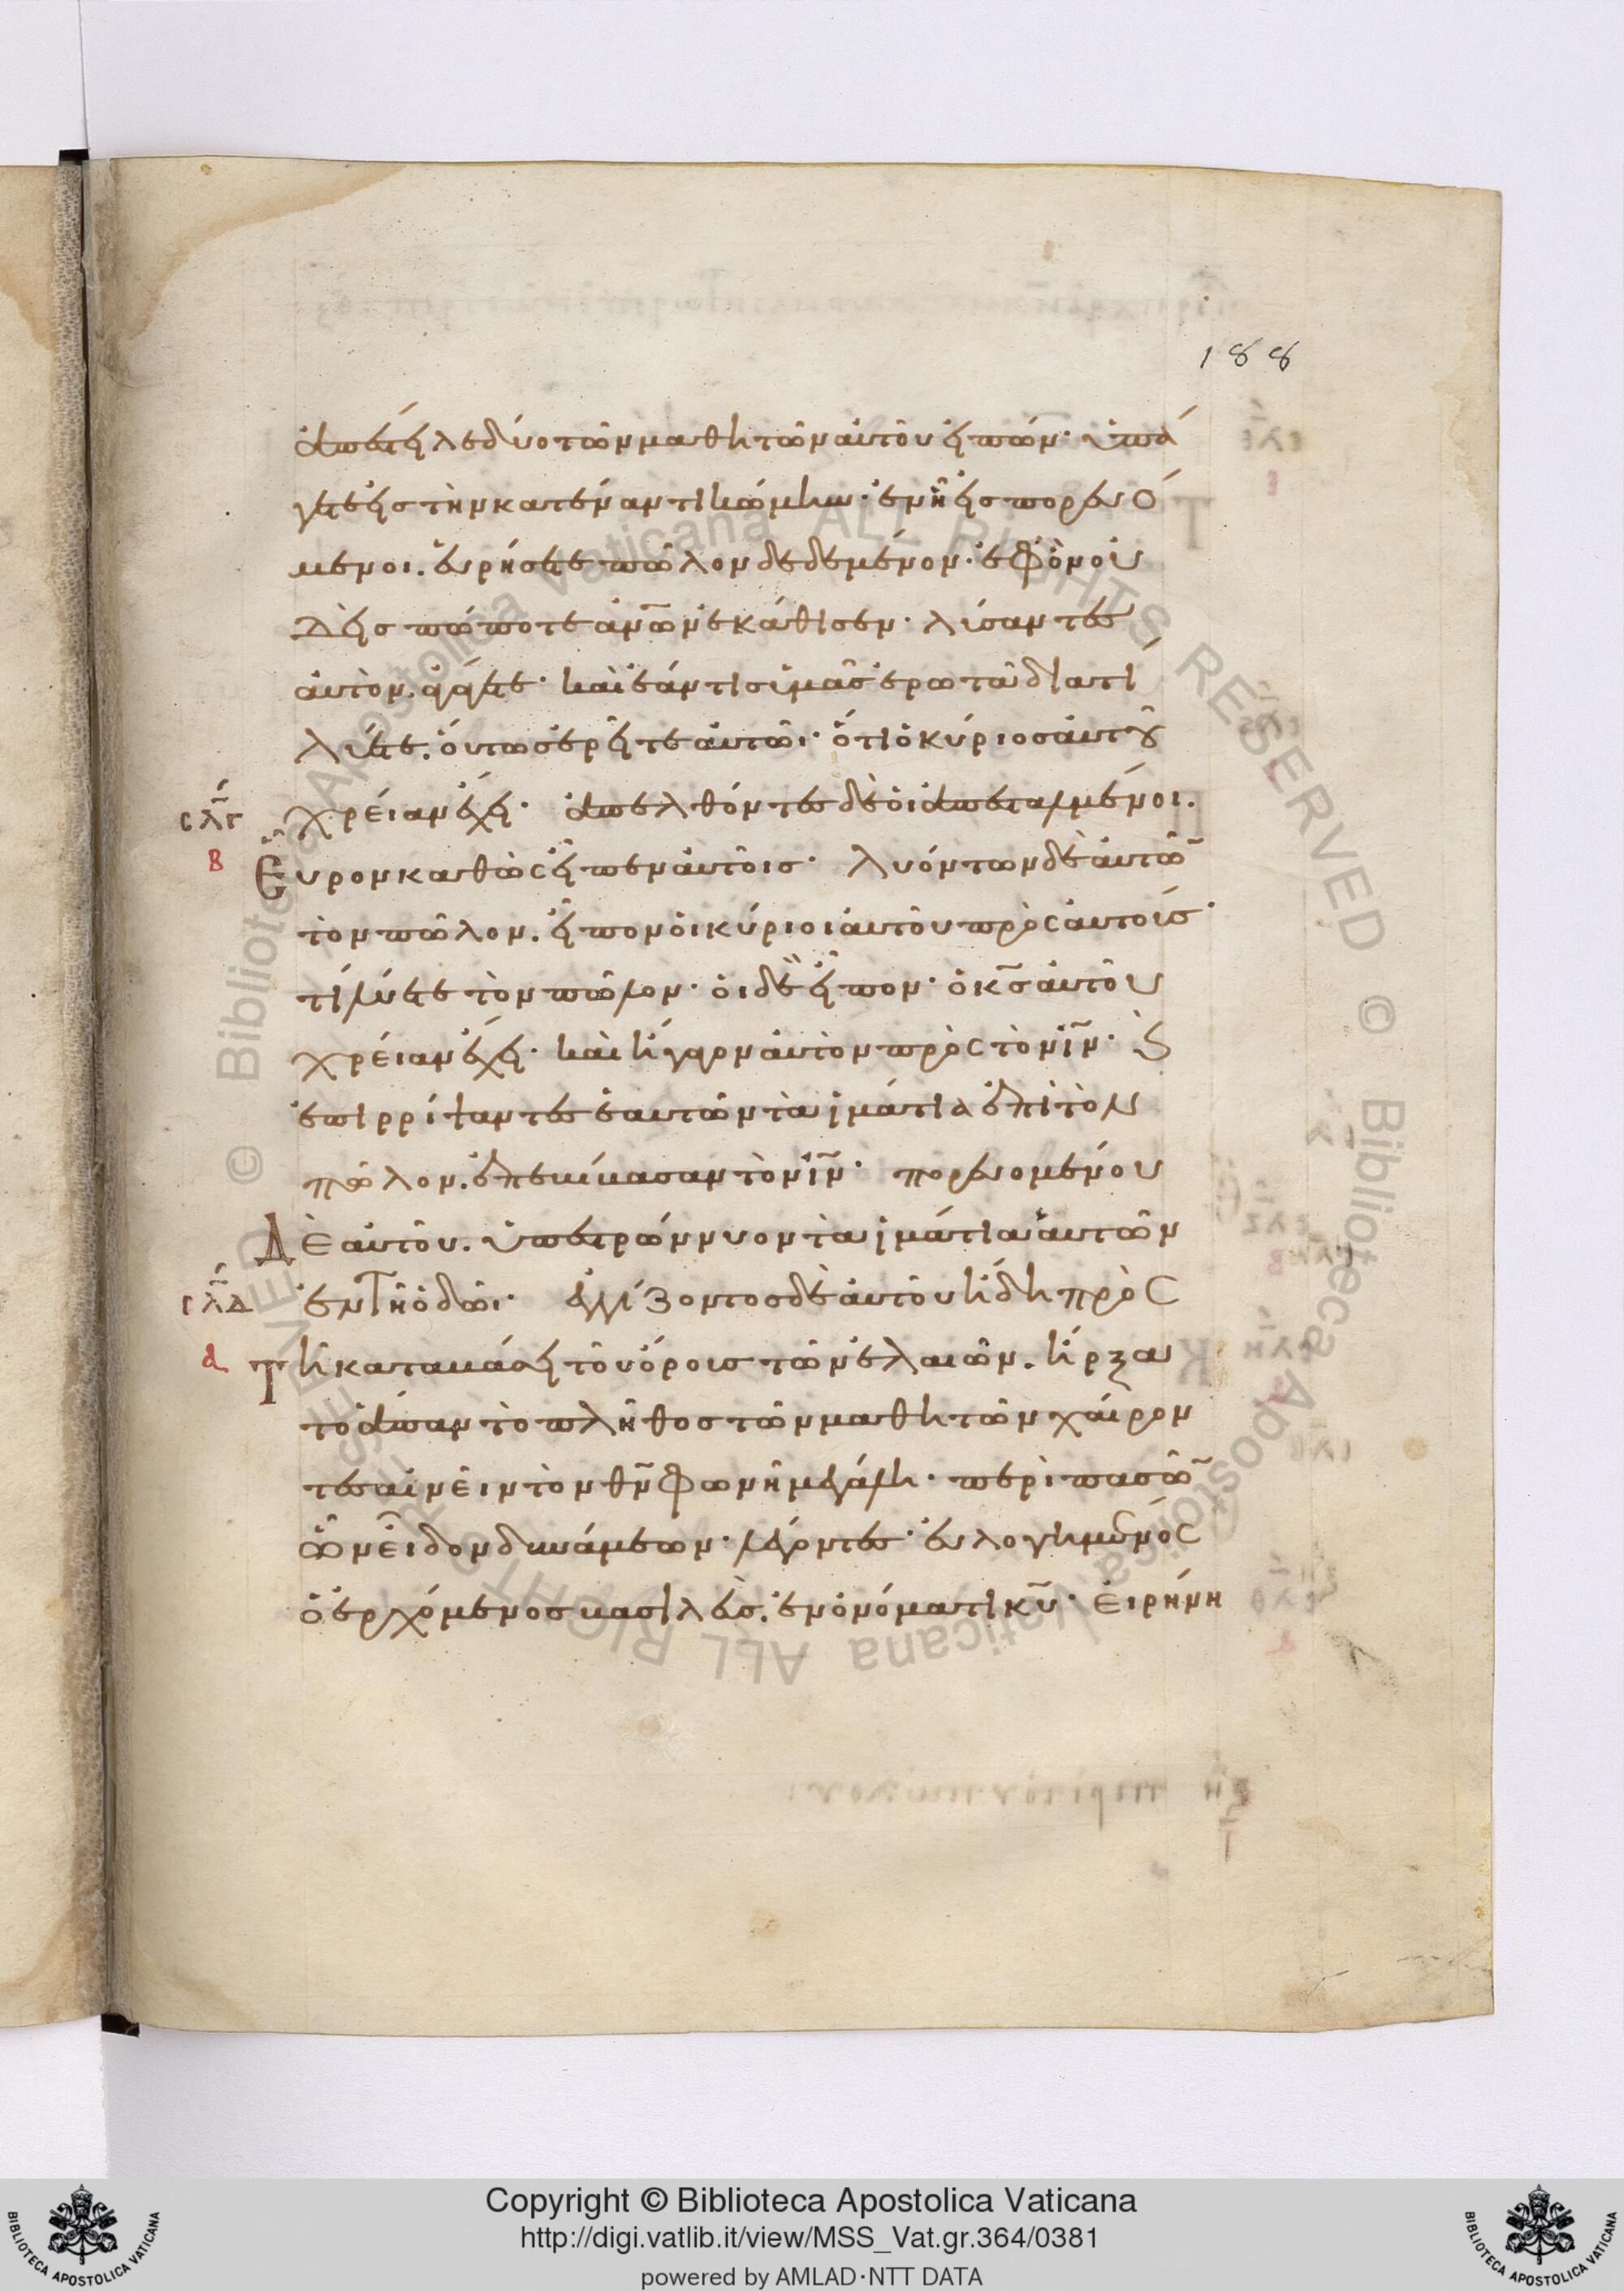 188
ἀπέστειλε δύο τῶν μαθητῶν αὐτοῦ εἰπών· ὑπά
γετε εἰς τὴν κατέναντι κώμην· ἐν ἧ εἰσπορευό
μενοι. εὑρήσετε πῶλον δεδεμένον· ἐφ ὃν οὐ
δεὶς πώποτε ἀν̅ω̅ν ἐκάθισεν· λύσαντες
αὐτὸν. ἀγάγετε· καὶ ἐάν τις ὑμᾶς ἐρωτᾶ διατί
λύετε. οὕτως ἐρεῖτε αὐτῶι· ὅτι ὁ κύριος αὐτοῦ
σλγ χρείαν ἔχει· ἀπελθόντες δὲ οἱ ἀπεσταλμένοι.
β Εὗρον καθὼς εἶπεν αὐτοῖς· λυόντων δὲ αὐτῶ̅
τὸν πῶλον. εἶπον οἱ κύριοι αὐτοῦ πρὸς αὐτούς·
τί λύετε τὸν πῶλον· οἱ δὲ εἶπον· ὁ κ̅ς̅ αὐτοῦ
χρείαν ἔχει· καὶ ἤγαγον αὐτὸν πρὸς τὸν ι̅ν̅· ϗ
ἐπιρρίψαντες ἑαυτῶν τὰ ἱμάτια ἐπὶ τὸν
πῶλον. ἐπεβίβασαν τὸν ι̅ν̅· πορευομένου
Δὲ αὐτοῦ. ὑπεστρώννυον τὰ ἱμάτια αὐτῶν
σλδ ἐν τῆ ὁδῶι· ἐγγίζοντος δὲ αὐτοῦ ἤδη πρὸς
α Τῆ καταβάσει τοῦ ὄρους τῶν ἐλαιῶν. ἤρξα
το ἅπαν τὸ πλῆθος τῶν μαθητῶν χαίρον
τες αἰνεῖν τὸν θ̅ν̅ φωνῆ μεγάλη· περὶ πασῶ̅
ὧν εἶδον δυνάμεων· λέγοντες· εὐλογημένος
ὁ ἐρχόμενος βασιλεὺς. ἐν ὀνόματι κ̅υ̅· εἰρήνη
© Biblioteca Apostolica Vaticana ALL RIGHTS RESERVED © Biblioteca Apostolica Vaticana ALL RIGHTS RESERVED
BIBLIOTECA APOSTOLICA VATICANA
Copyright © Biblioteca Apostolica Vaticana
http://digi.vatlib.it/view/MSS_Vat.gr.364/0381
powered by AMLAD·NTT DATA
BIBLIOTECA APOSTOLICA VATICANA